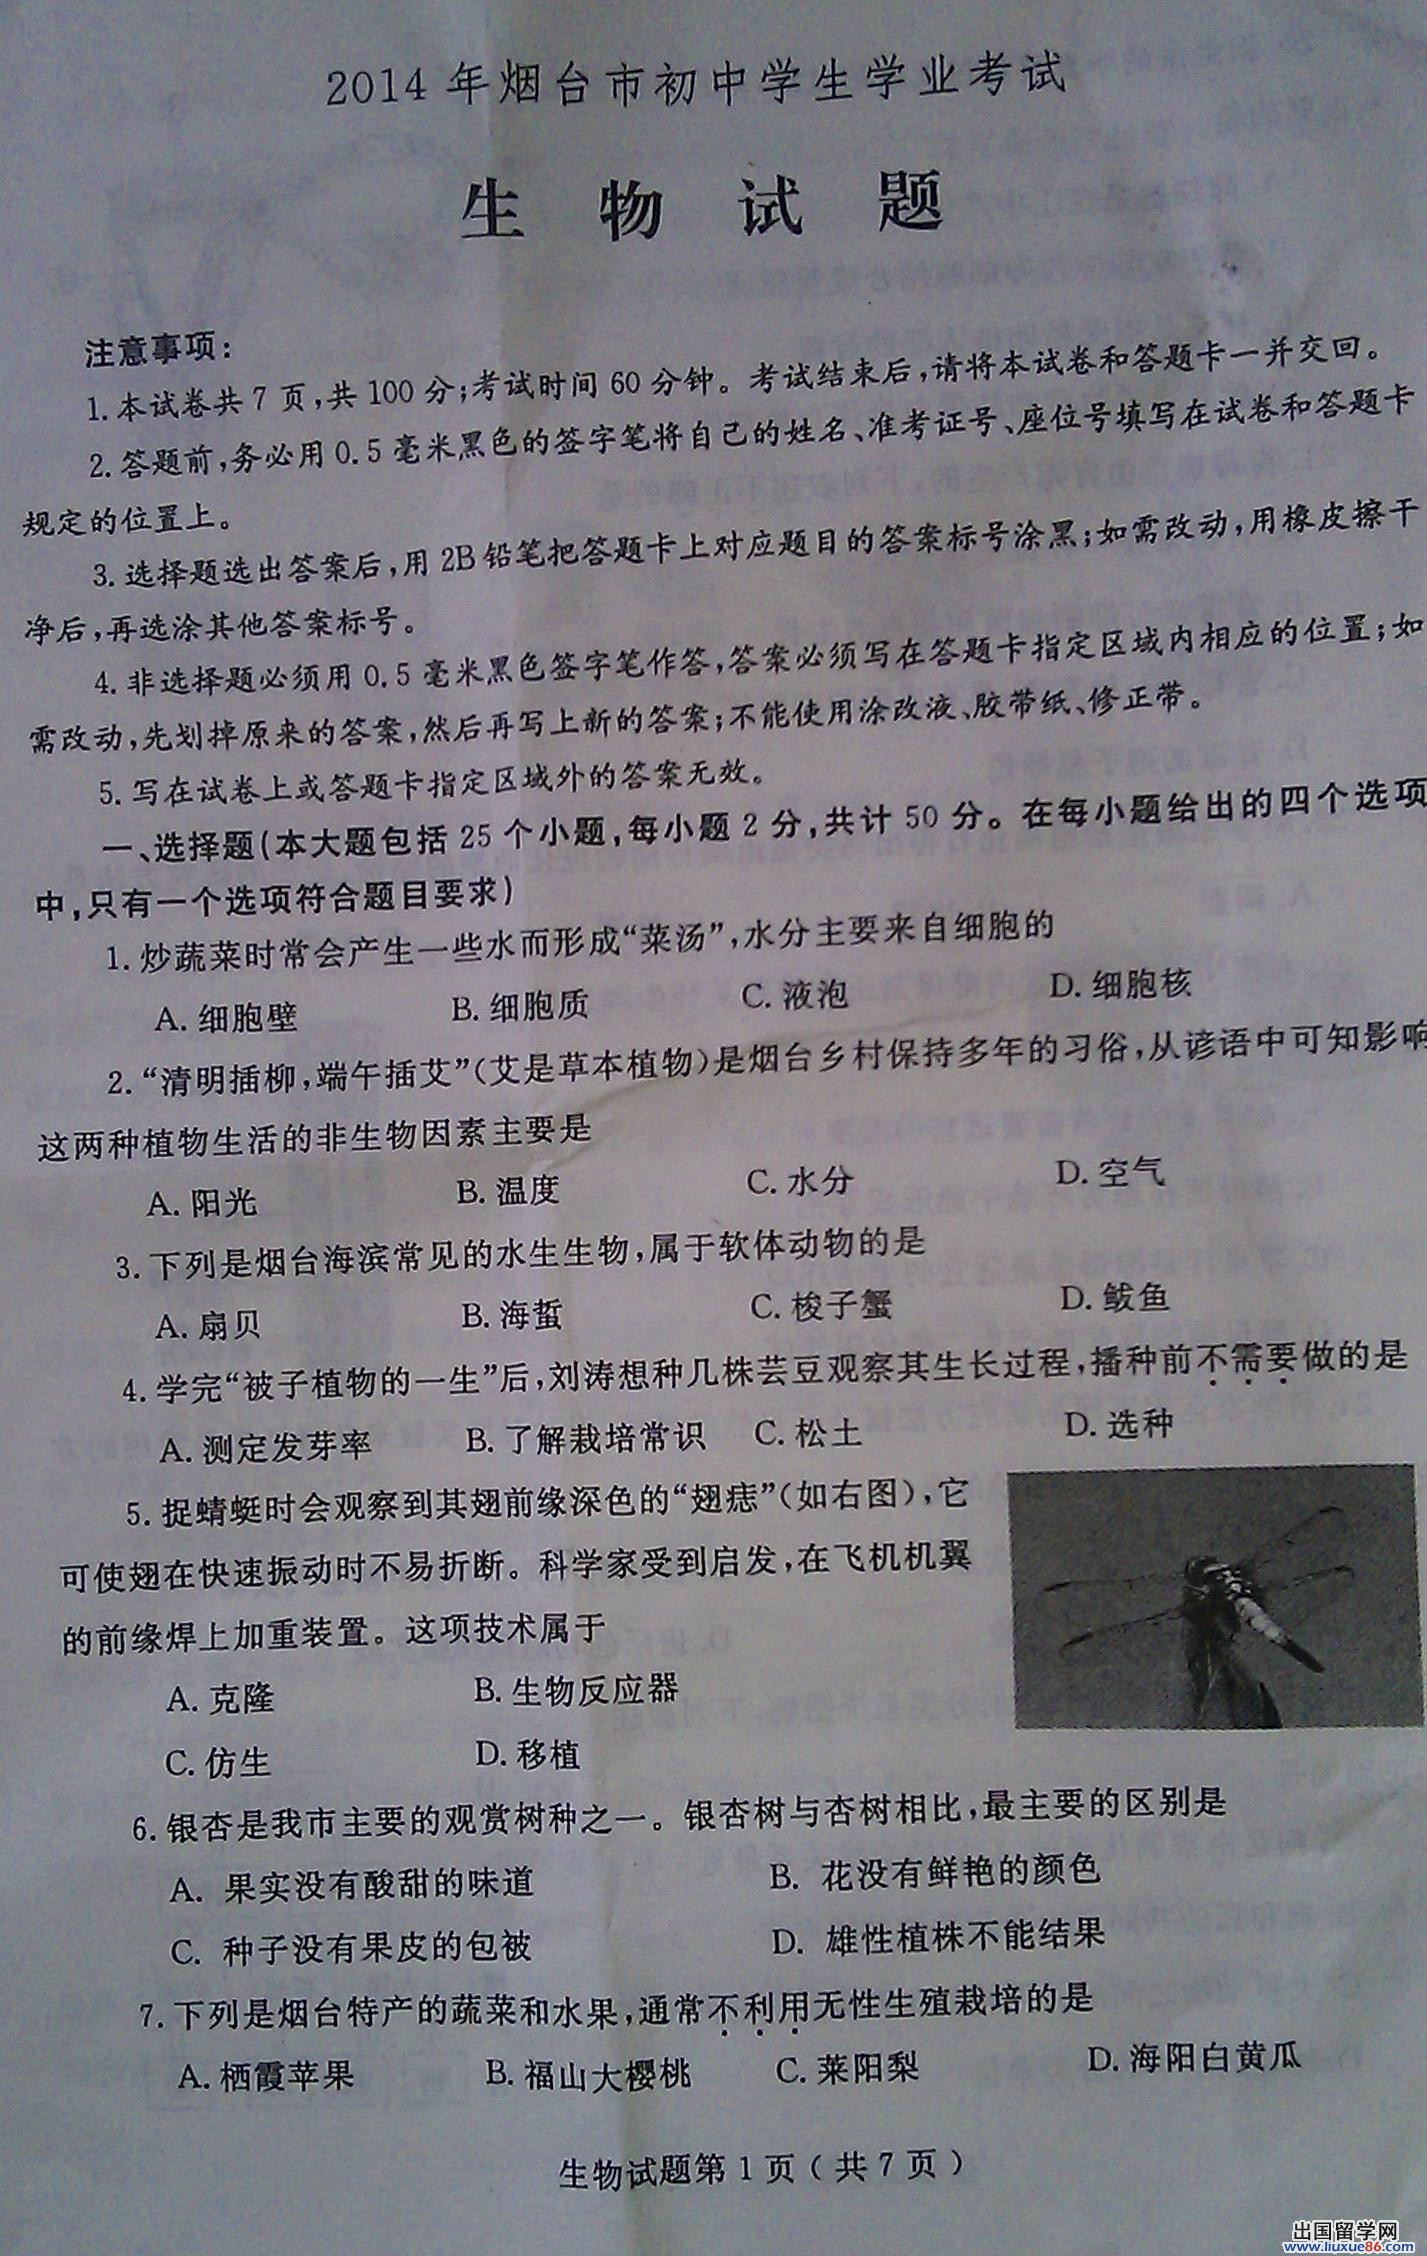 2014年烟台市初中学生学业考试
生 物 试 题
注意事项：
1.本试卷共7页，共100分；考试时间60分钟。考试结束后，请将本试卷和答题卡一并交回。
2.答题前，务必用0.5毫米黑色的签字笔将自己的姓名、准考证号、座位号填写在试卷和答题卡
规定的位置上。
3.选择题选出答案后，用2B铅笔把答题卡上对应题目的答案标号涂黑；如需改动，用橡皮擦干
净后，再选涂其他答案标号。
4.非选择题必须用0.5毫米黑色签字笔作答，答案必须写在答题卡指定区域内相应的位置；如
需改动，先划掉原来的答案，然后再写上新的答案；不能使用涂改液、胶带纸、修正带。
5.写在试卷上或答题卡指定区域外的答案无效。
一、选择题（本大题包括25个小题，每小题2分，共计50分。在每小题给出的四个选项
中，只有一个选项符合题目要求）
1.炒蔬菜时常会产生一些水而形成“菜汤”，水分主要来自细胞的
A.细胞壁 B.细胞质 C.液泡 D.细胞核
2.“清明插柳，端午插艾”（艾是草本植物）是烟台乡村保持多年的习俗，从谚语中可知影响
这两种植物生活的非生物因素主要是
A.阳光 B.温度 C.水分 D.空气
3.下列是烟台海滨常见的水生生物，属于软体动物的是
A.扇贝 B.海蜇 C.梭子蟹 D.鲅鱼
4.学完“被子植物的一生”后，刘涛想种几株芸豆观察其生长过程，播种前不需要做的是
A.测定发芽率 B.了解栽培常识 C.松土 D.选种
5.捉蜻蜓时会观察到其翅前缘深色的“翅痣”（如右图），它
可使翅在快速振动时不易折断。科学家受到启发，在飞机机翼
的前缘焊上加重装置。这项技术属于
A.克隆 B.生物反应器
C.仿生 D.移植
6.银杏是我市主要的观赏树种之一。银杏树与杏树相比，最主要的区别是
A. 果实没有酸甜的味道 B. 花没有鲜艳的颜色
C. 种子没有果皮的包被 D. 雄性植株不能结果
7.下列是烟台特产的蔬菜和水果，通常不利用无性生殖栽培的是
A.栖霞苹果 B.福山大樱桃 C.莱阳梨 D.海阳白黄瓜
生物试题第1页（共7页）
出国留学网
www.liuxue86.com